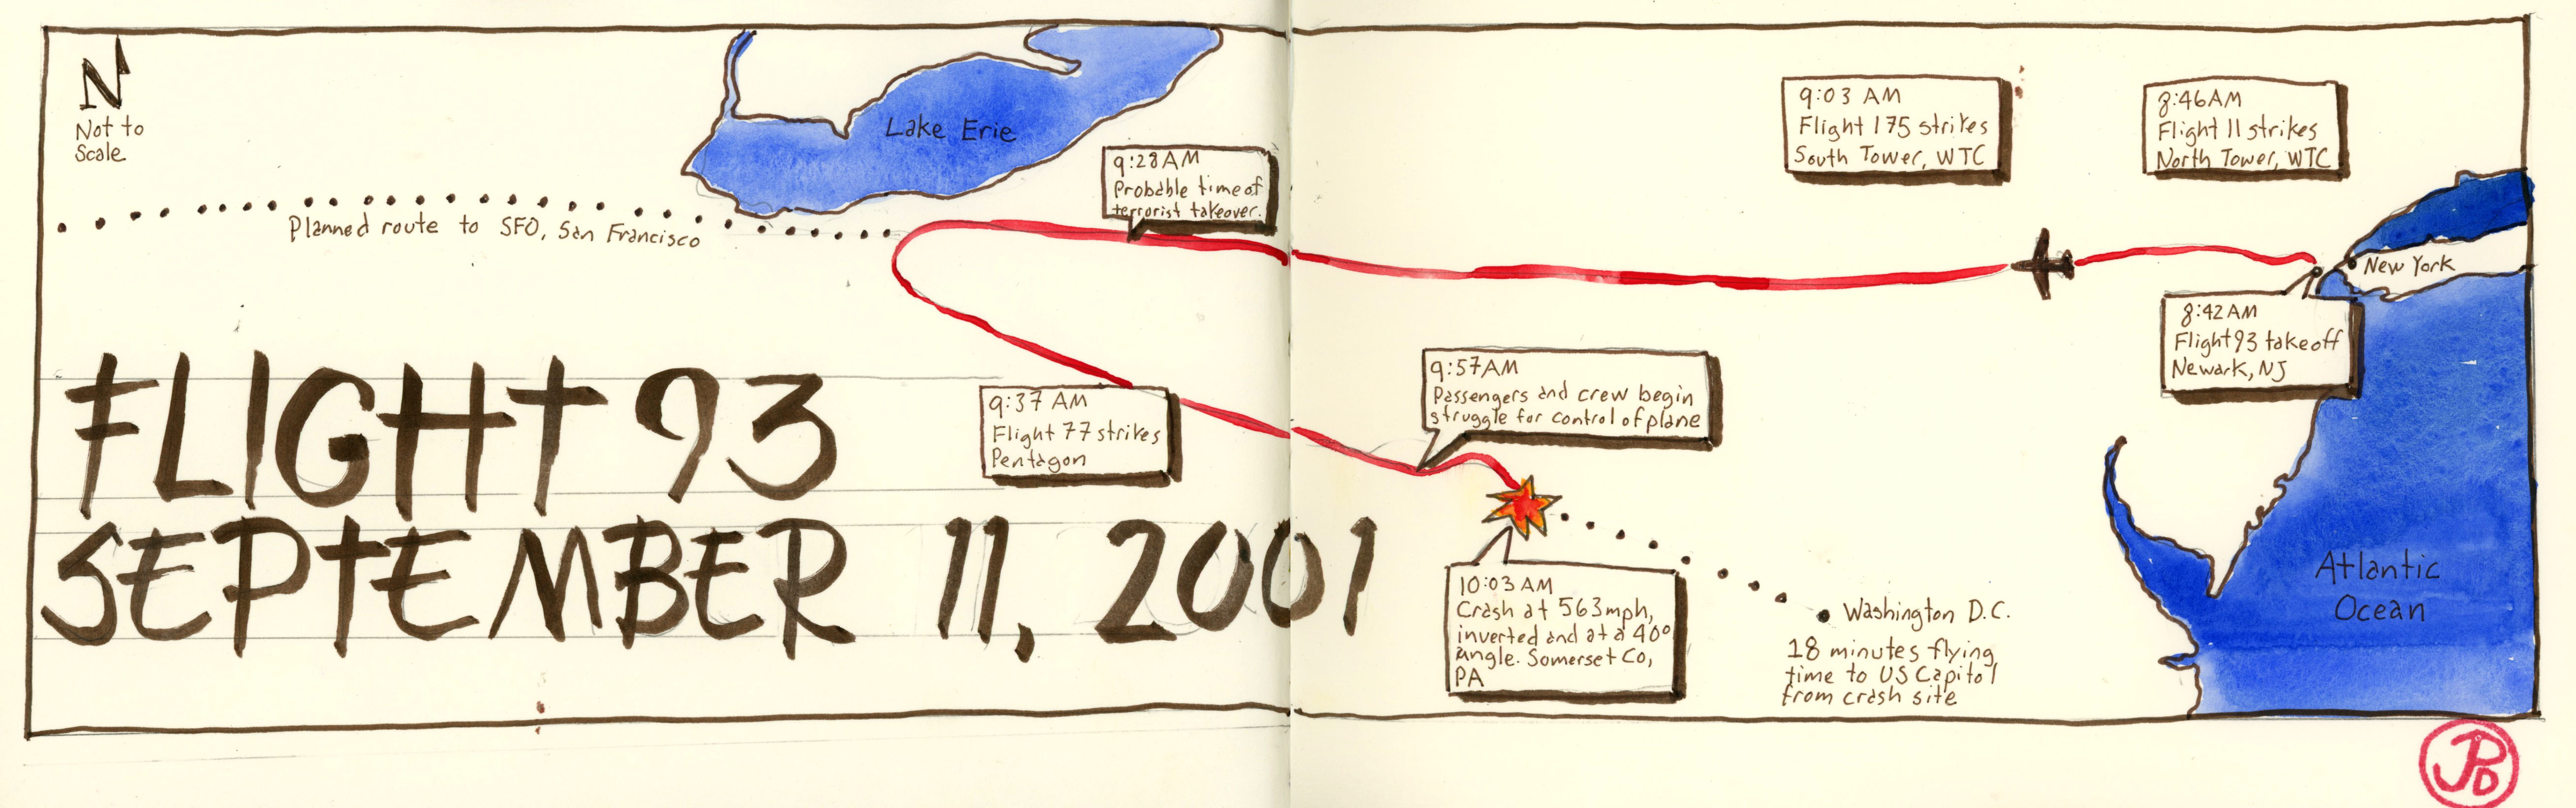 N
Not to
Scale
Lake Erie
9:28 AM
Probable time of
terrorist takeover.
9:03 AM
Flight 175 strikes
South Tower, WTC
8:46 AM
Flight 11 strikes
North Tower, WTC
Planned route to SFO, San Francisco
New York
8:42 AM
Flight 93 takeoff
Newark, NJ
9:37 AM
Flight 77 strikes
Pentagon
9:57 AM
Passengers and crew begin
struggle for control of plane
FLIGHT 93
SEPTEMBER 11, 2001
10:03 AM
Crash at 563mph,
inverted and at a 40°
angle. Somerset Co,
PA
Washington D.C.
18 minutes flying
time to US Capitol
from crash site
Atlantic
Ocean
JPD